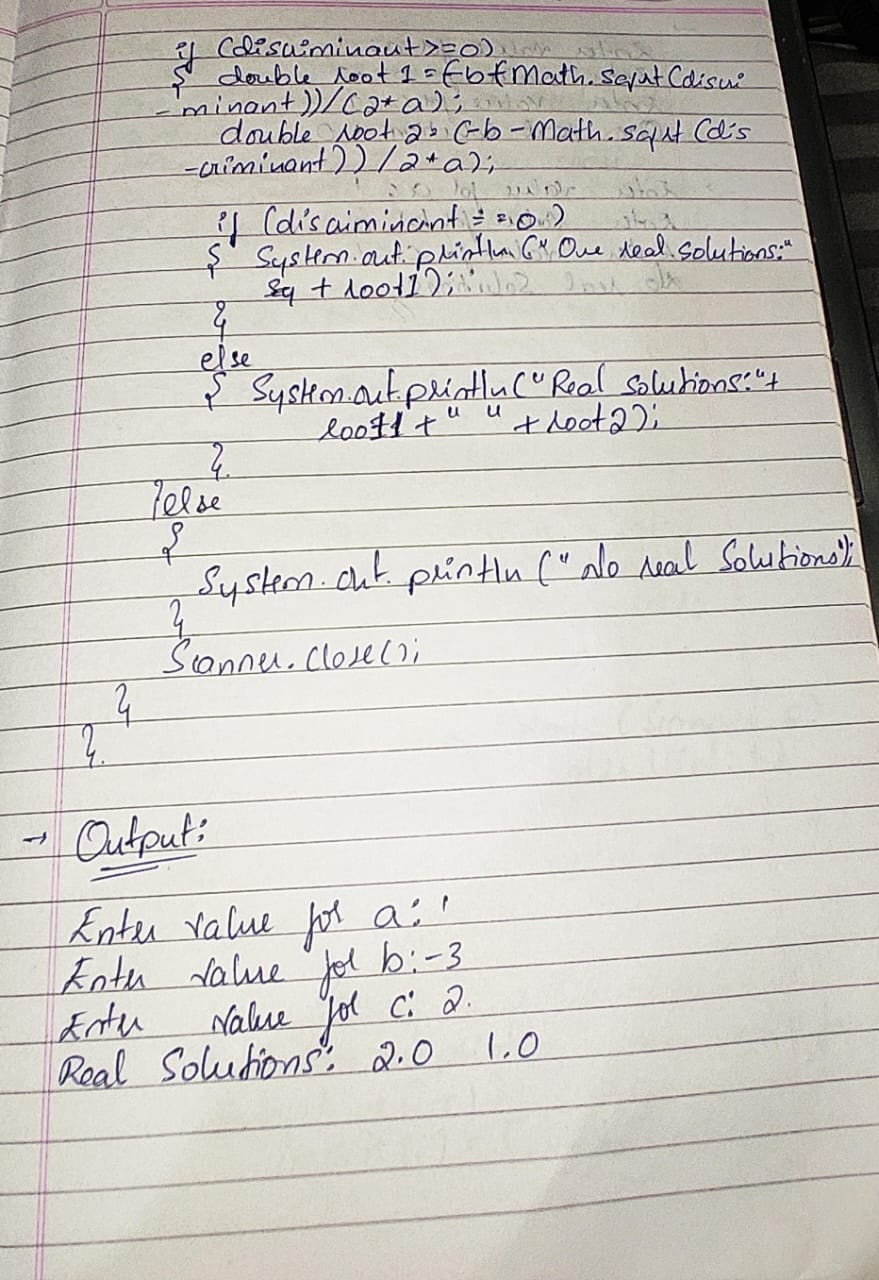 if (discriminant>=0)
{ double root 1 = (-b + Math.sqrt(discri
-minant))/(2*a);
double root 2 = (-b - Math.sqrt (dis
-criminant))/2*a);
if (discriminant = = 0)
{ System.out.println(" One real solutions:"
+ root1);
}
else
{ System.out.println("Real solutions:"+
root1 + " " + root2);
}
}else
{
System.out.println (" No real Solutions");
}
Scanner.close();
}
}
→ Output:
Enter value for a: 1
Enter value for b: -3
Enter value for c: 2.
Real Solutions: 2.0 1.0